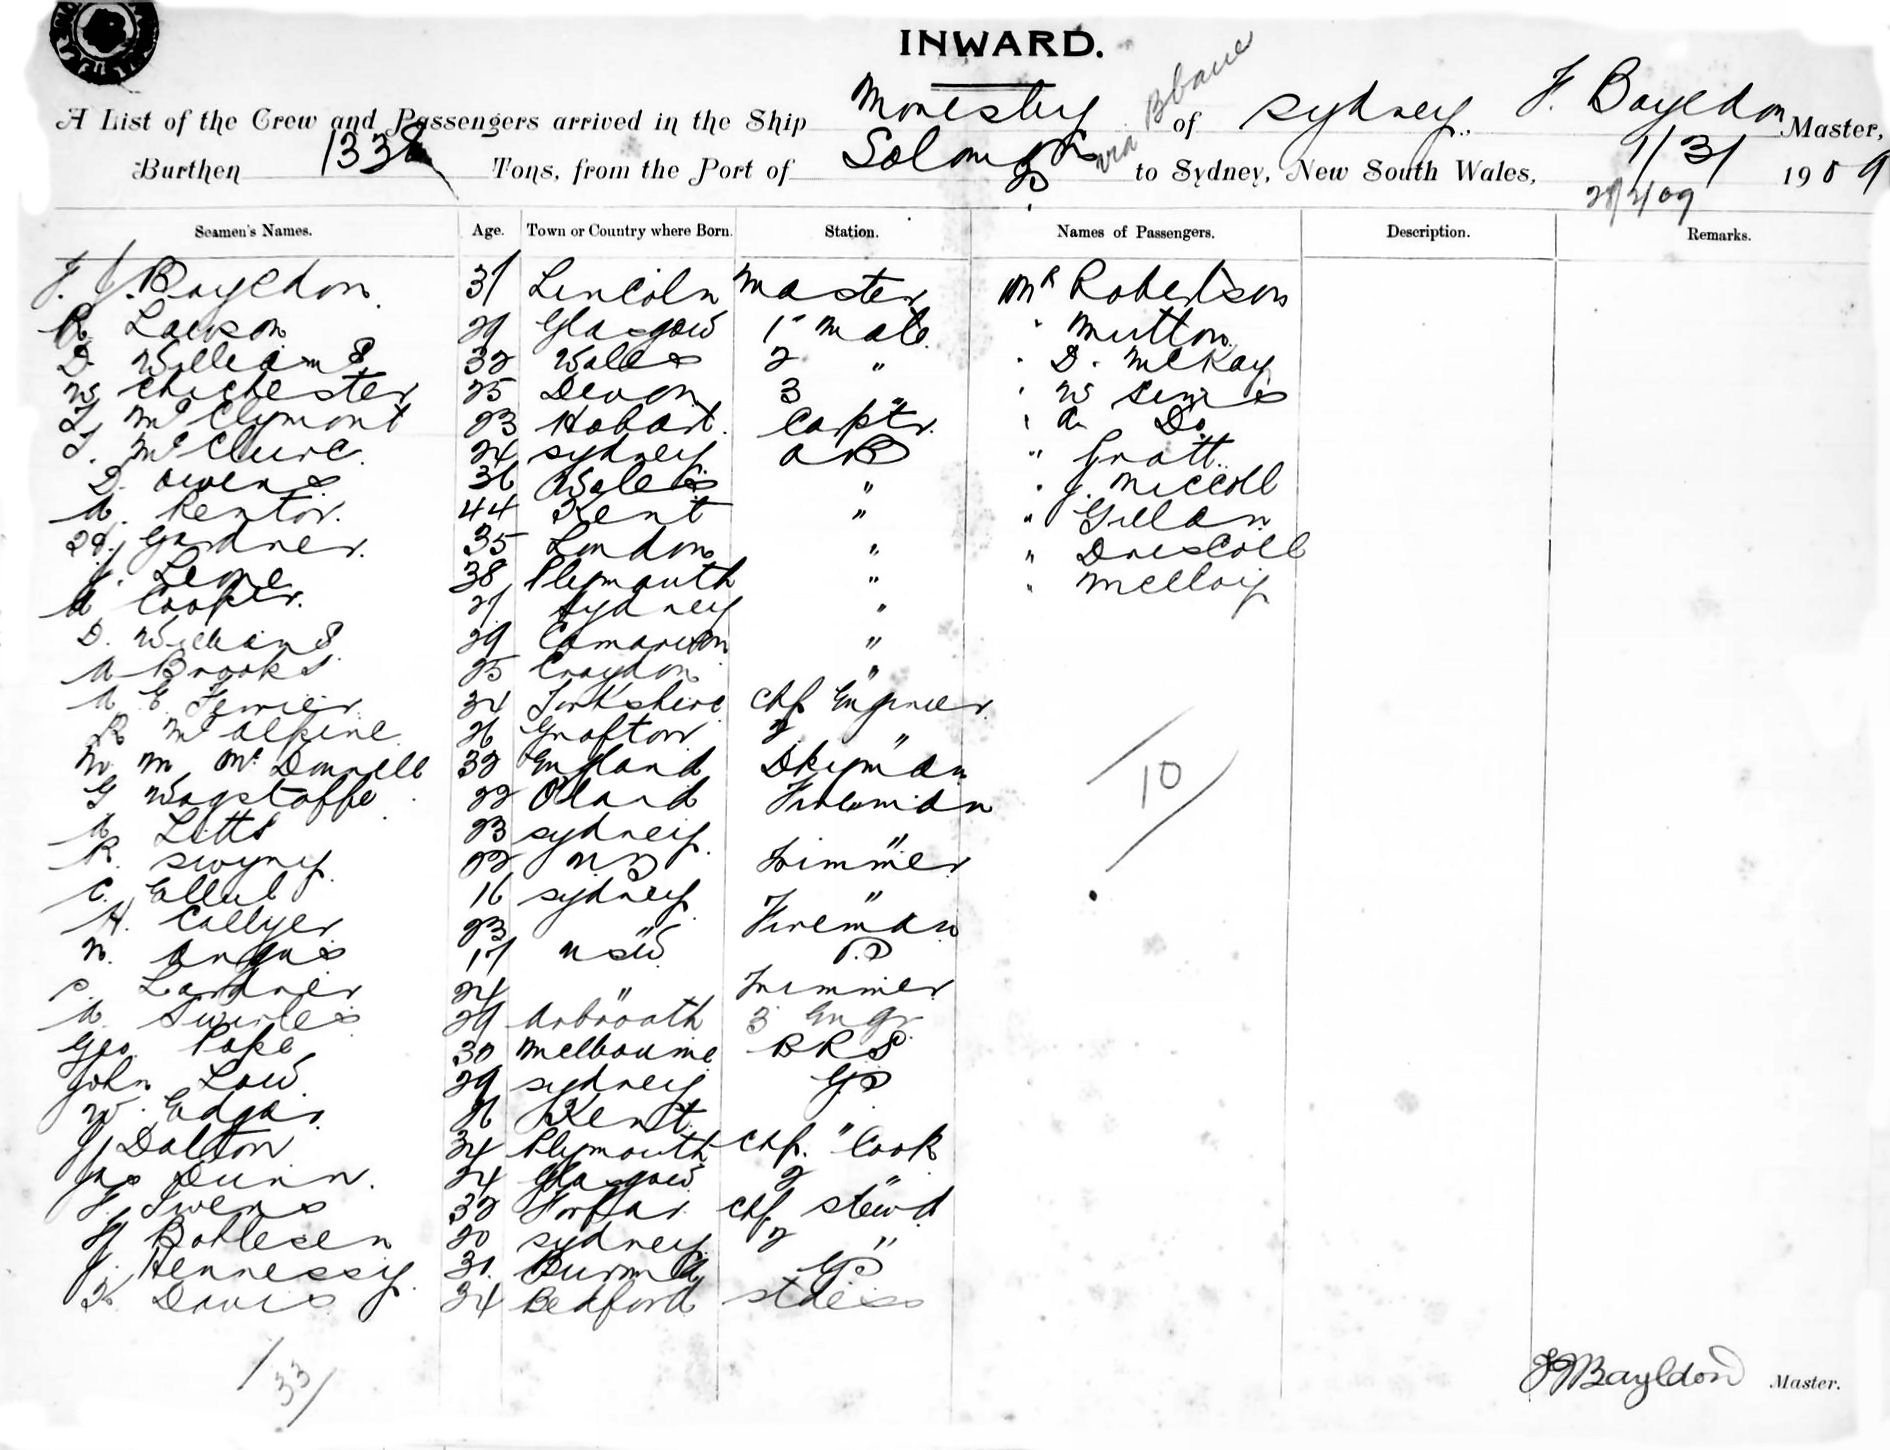 INWARD.
A List of the Crew and Passengers arrived in the Ship Moresby of Sydney, F. Bayldon Master,
via Bbane
Burthen 1338 Tons, from the Port of Solomon to Sydney, New South Wales, 1/3/ 1909
28/2/09
Seamen's Names. Age. Town or Country where Born. Station. Names of Passengers. Description. Remarks.
F. J. Bayldon 31 Lincoln Master Mr Robertson
R Lawson 29 Glasgow 1st Mate " Mutton
D. Williams 32 Wales 2 " " D. McKay
W Chichester 25 Devon 3 " " W
McClymont 23 Hobart Carptr. " A. Do.
McClure 24 Sydney AB "
D. Owens 36 Wales " " J. McColl
A. Kentor. 44 Kent " " Gillan
Gardner. 35 London " " Driscoll
38 Plymouth " " McElroy
A Cooper. 21 Sydney "
D. Williams 29 "
A Brooks 25 Croydon "
A E 34 Yorkshire Chf. Engineer
R McAlpine 26 Grafton 2 "
W M McDonnell 32 England Dkeyman
G Wagstaffe 22 Fireman
A Litts 23 Sydney. "
R. Swyny 22 NZ Trimmer
C. Ellul 16 Sydney "
H. Collyer 23 " Fireman
N. Angus 17 NSW
Lardner 24 " Trimmer
A. Swirles 29 Arbroath 3 Engr
Geo Pope 30 Melbourne BRS
John Low 29 Sydney GS
W. Edgar 26 Kent "
J Dalton 34 Plymouth Chf. Cook
Jas Dunn. 24 Glasgow 2 "
F. Iwens 32 Forfar Chf Stewd
20 Sydney 2 "
J. Hennessy 31. Burma GS
K Davis 34 Bedford Stdess
10
33
FJBayldon Master.